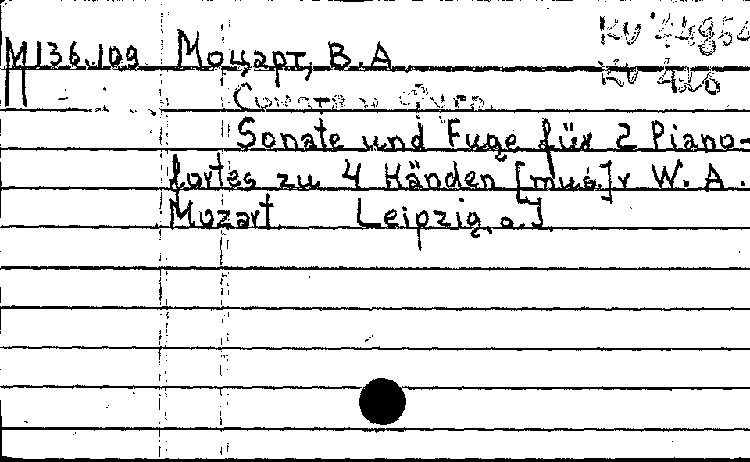 KV 448a
M136.109 Моцарт, В.А.
KV 426
Соната и Фуга.
Sonate und Fuge für 2 Piano-
fortes zu 4 Händen [mus.] v W. A.
Mozart. Leipzig, o. J.